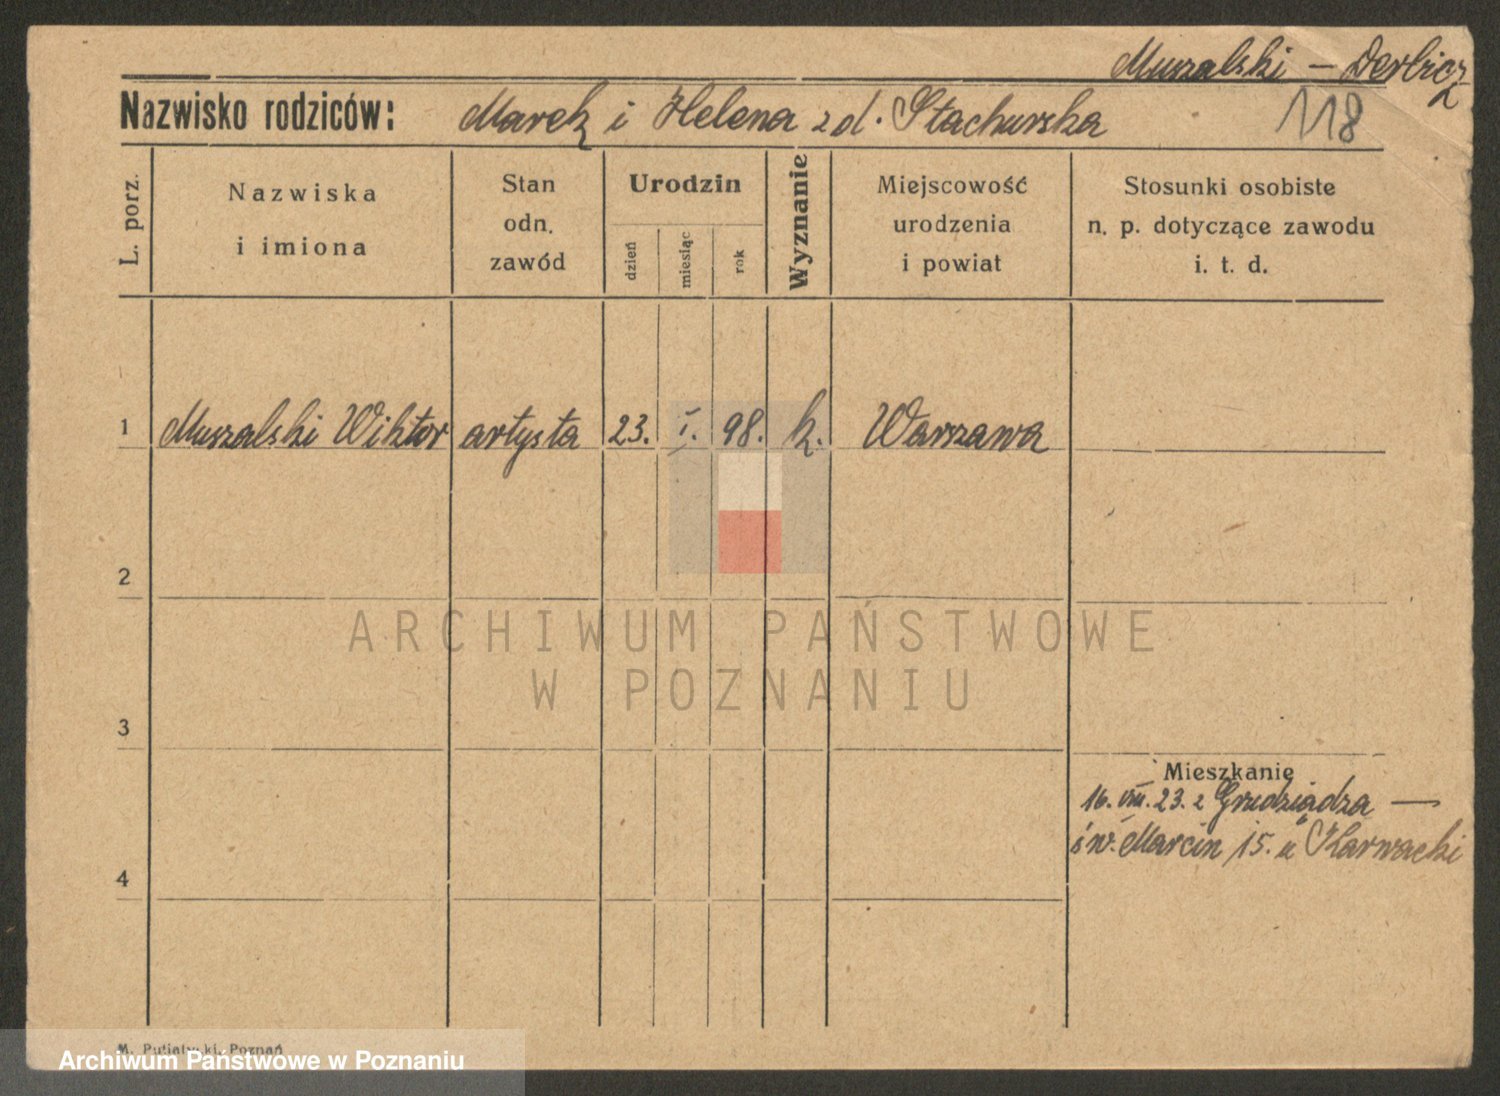 Muszalski – Derbicz
118
Nazwisko rodziców: Marek i Helena z d. Stachurska
L. porz.
Nazwiska
i imiona
Stan
odn.
zawód
Urodzin
dzień miesiąc rok
Wyznanie
Miejscowość
urodzenia
i powiat
Stosunki osobiste
n. p. dotyczące zawodu
i. t. d.
1 Muszalski Wiktor artysta 23. I. 98. k. Warszawa
2
ARCHIWUM PAŃSTWOWE
W POZNANIU
3
Mieszkanie
16. VIII. 23. z Grudziądza —
św. Marcin 15. u Karwacki
4
M. Putiatycki, Poznań
Archiwum Państwowe w Poznaniu